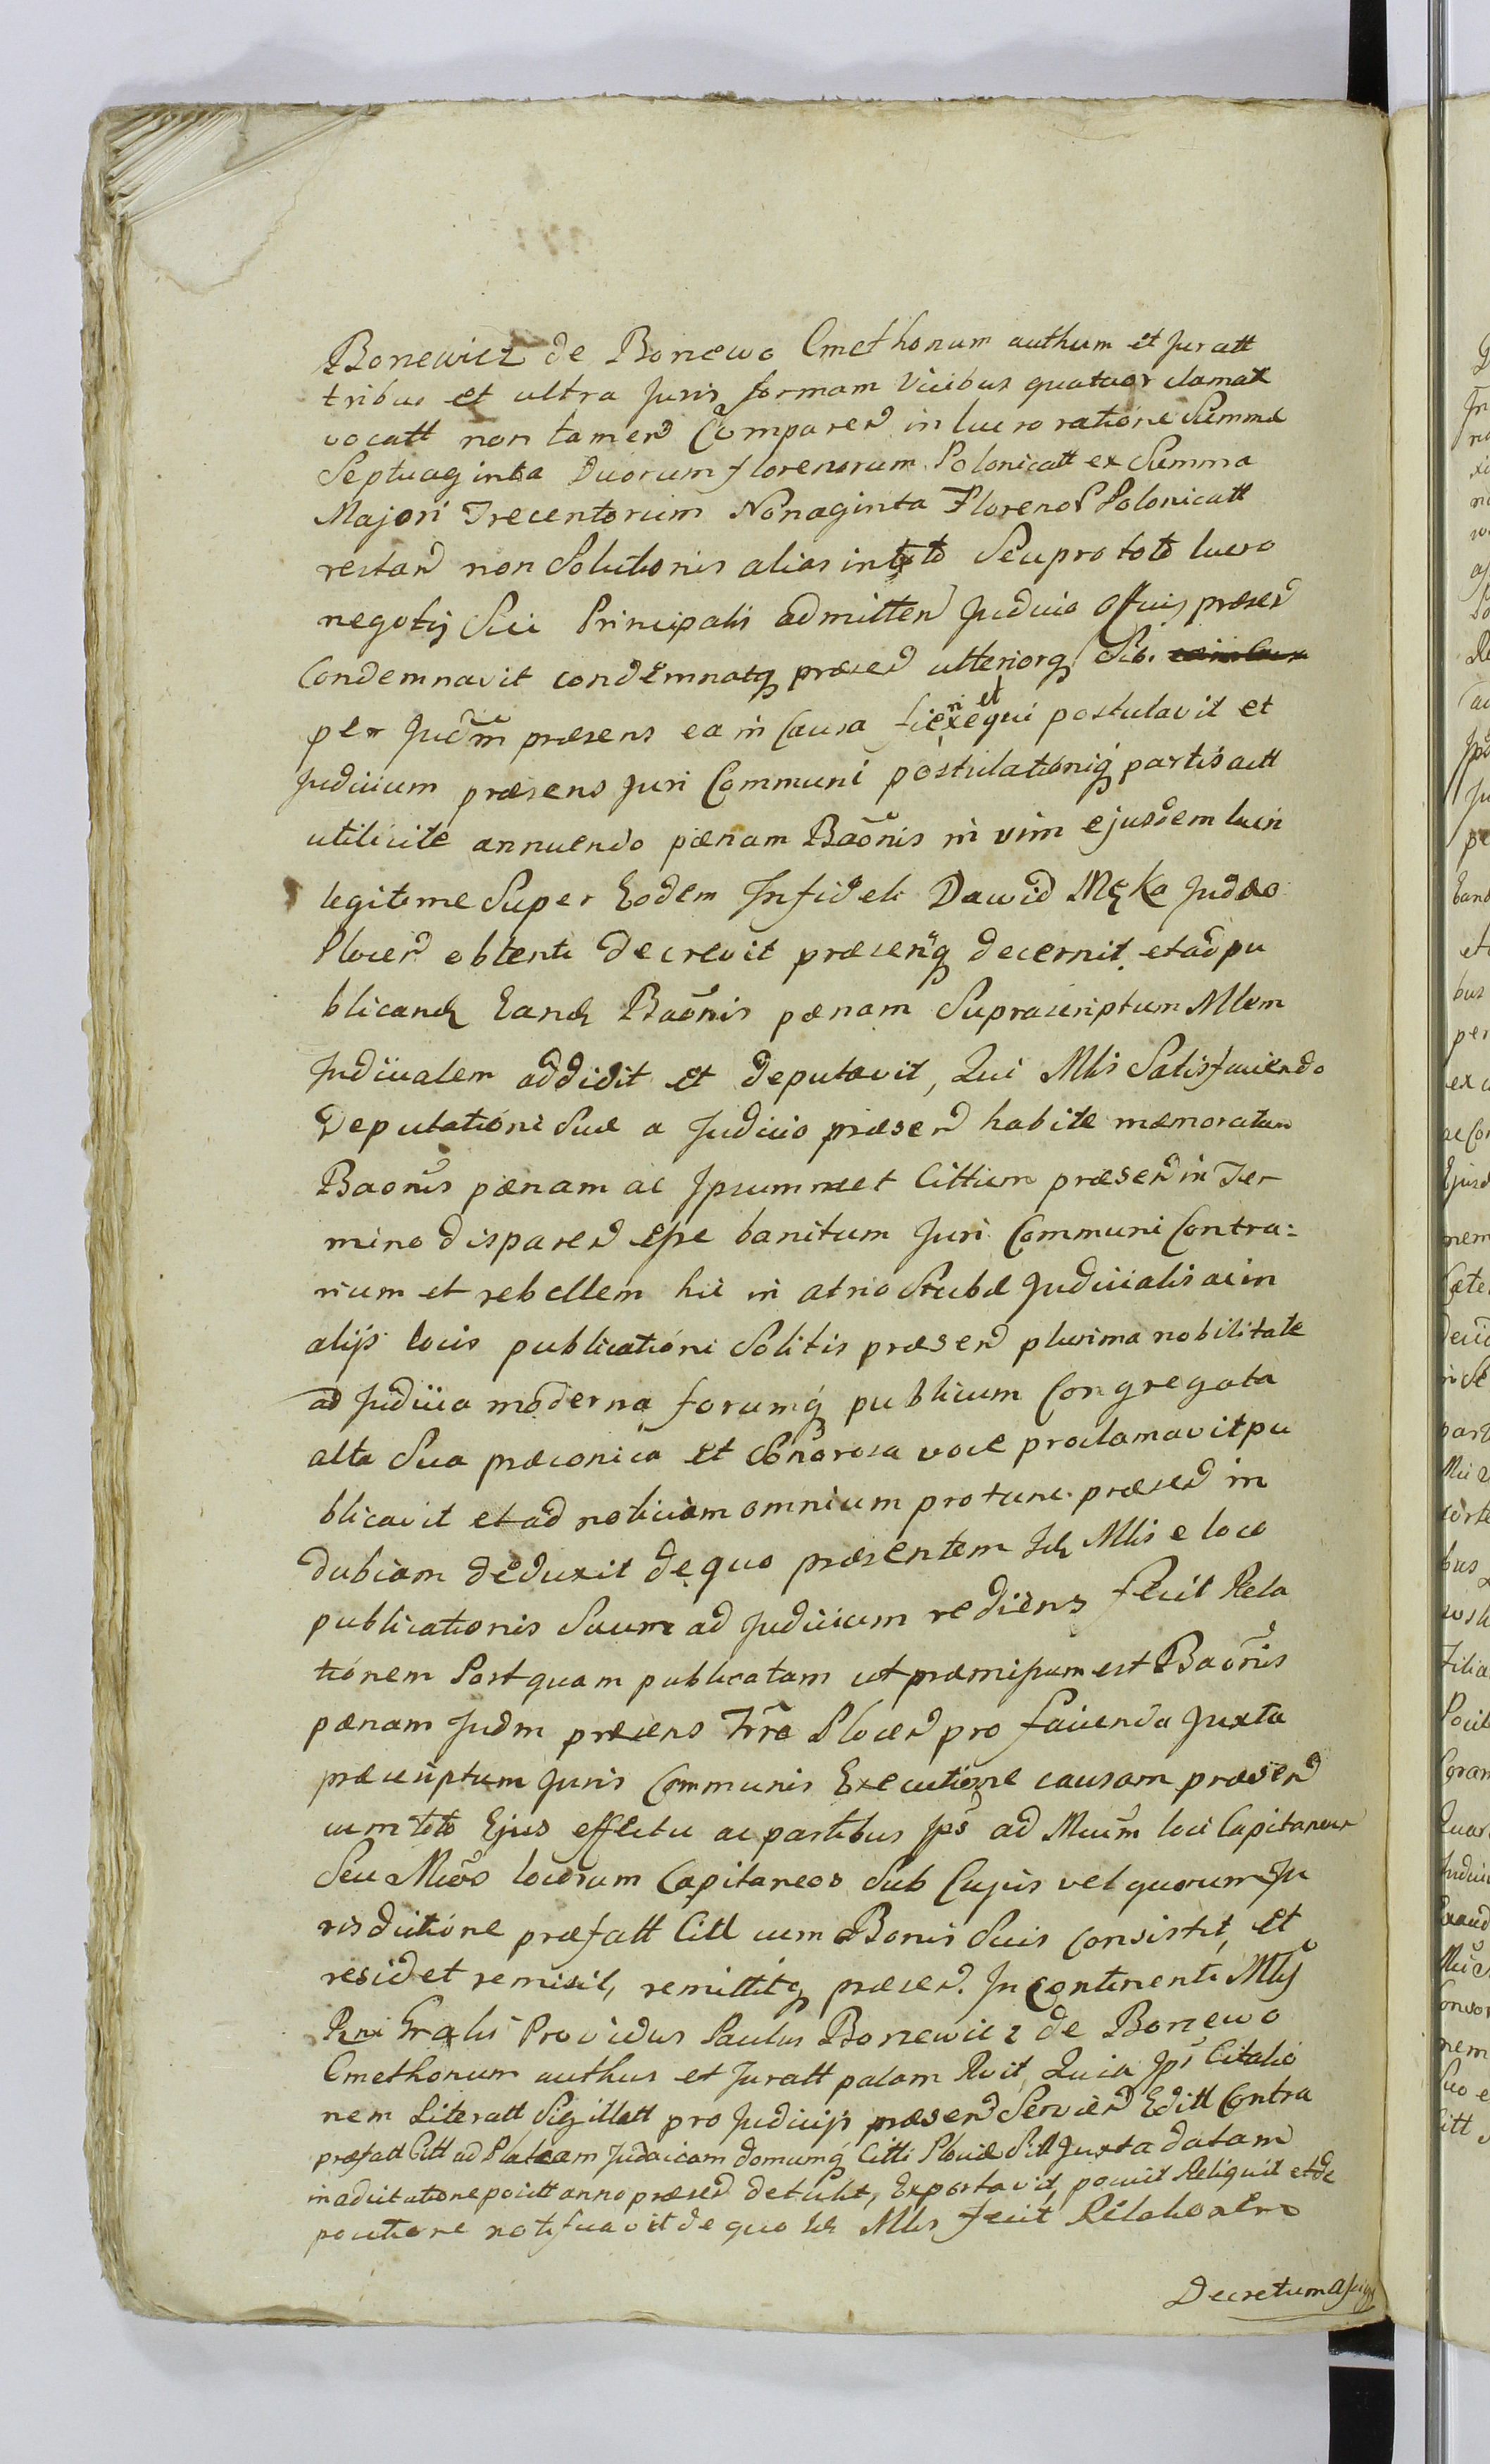 Bonewicz de Bonewo Cmethonum authum et Juratt
tribus et ultra Juris formam Vicibus quatuor clamatt
vocatt non tamen Comparen in lucro ratione Summæ
Septuaginta Duorum florenorum Polonicatt ex Summa
Majori Trecentorum Nonaginta Florenor Polonicatt
restan non Solutionis alias in toto Seu pro toto lucro
negotij Sui Principalis admitten Judicio Officij præsen
Condemnavit condemnatq præsen ulteriorq Sibi
per Judm præsens ea in Causa fieri et exequi postulavit et
Judicium præsens Juri Communi postulationiq partis actt
utilicite annuendo pænam Baonis in vim ejusdem lucri
legitime Super Eodem Infideli Dawid Męka Judæo
Plocen obtenti decrevit præsenq decernit et ad pu
blicand Eand Baonis pænam Suprascriptum Mlem
Judicialem addidit et deputavit, Qui Mlis Satisfaciendo
Deputationi Suæ a Judicio præsen habitæ memoratam
Baonis pænam ac Ipsummet Cittum præsen in Ter
mino disparen esse banitum Juri Communi Contra:
rium et rebellem hic in atrio Stubæ Judicialis ac in
alijs locis publicationi Solitis præsen plurima nobilitate
ad Judicia moderna forumq publicum Congregata
alta Sua præconica et Sonorosa voce proclamavit pu
blicavit et ad noticiam omnium pro tunc præsen in
dubiam deduxit de quo præsentem Id Mlis e loco
publicationis Suum ad Judicium rediens fecit Rela
tionem Post quam publicatam ut præmissum est Baonis
pænam Judm præsens Trre Plocen pro facienda Juxta
præscriptum Juris Communis Executione causam præsen
cum toto Ejus effectu ac partibus Ips ad Mcum loci Capitaneum
Seu Mcos locorum Capitaneos Sub Cujus vel quorum Ju
risdictione præfatt Citt cum Bonis Suis Consistit, et
residet remisit, remittitq præsen. In Continenti Mlis
Rni Gralis Providus Paulus Bonewicz de Bonewo
Cmethonum authus et Juratt palam Rvit, Quia Ips Citatio
nem Literatt Sigillatt pro Judicijs præsen Servien Editt Contra
præfatt Citt ad Plateam Judaicam domumq Citti Plociæ Sitt Juxta datam
in adcitatione positt anno præsen detulit, Exportavit, posuit Reliquit et de
positione notificavit de quo Id Mlis fecit Relationem
Decretum